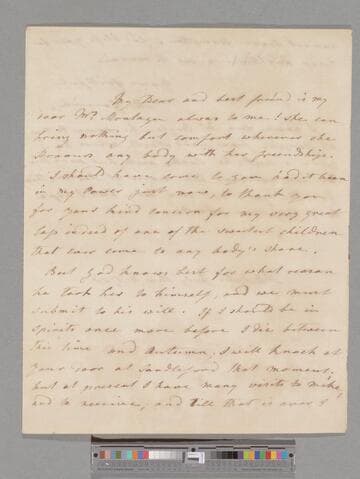 My Dear and best friend is my
dear Mrs. Montagu always to me! She can
bring nothing but comfort wherever she
Honours any body with her friendships.
I should have come to you had it been
in my Power just now, to thank you
for your kind concern for my very great
loss indeed of one of the sweetest children
that ever come to any body's share.
But God knows best for what reason
he took her to himself, and we must
submit to his will. If I should be in
Spirits once more before I die between
this time and Autumn, I will knock at
your door at Sandleford that moment,
but at present I have many visits to make,
and to receive, and till that is over I